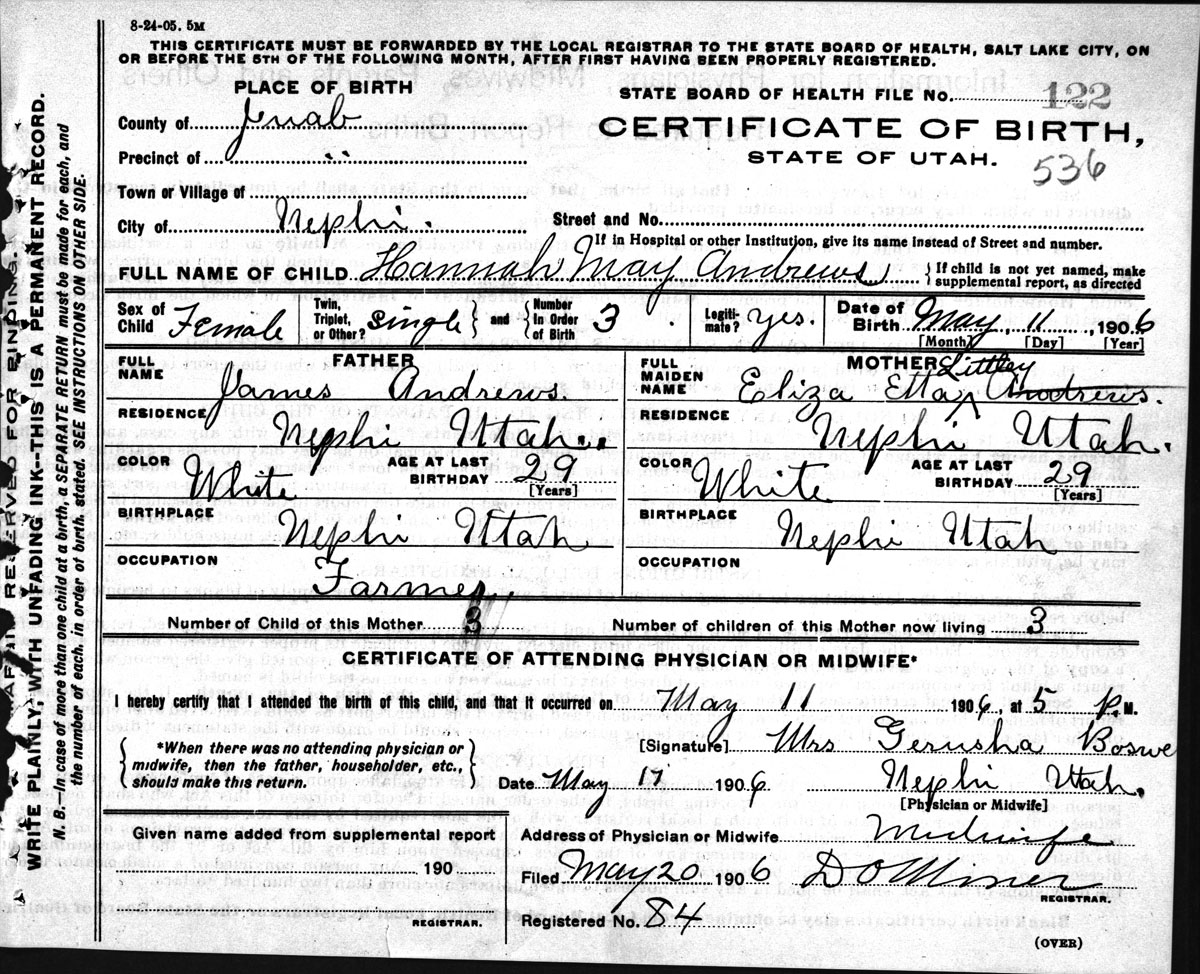 8-24-05. 5M
THIS CERTIFICATE MUST BE FORWARDED BY THE LOCAL REGISTRAR TO THE STATE BOARD OF HEALTH, SALT LAKE CITY, ON
OR BEFORE THE 5TH OF THE FOLLOWING MONTH, AFTER FIRST HAVING BEEN PROPERLY REGISTERED.
PLACE OF BIRTH
STATE BOARD OF HEALTH FILE No. 122
County of Juab
CERTIFICATE OF BIRTH,
Precinct of "
STATE OF UTAH.
536
Town or Village of
City of Nephi.
Street and No.
If in Hospital or other Institution, give its name instead of Street and number.
FULL NAME OF CHILD Hannah May Andrews
{If child is not yet named, make
supplemental report, as directed
Sex of Child Female
Twin, Triplet, or Other? single
and
Number In Order of Birth 3
Legitimate? yes.
Date of Birth May 11, 1906
[Month] [Day] [Year]
FATHER
FULL NAME James Andrews.
MOTHER
FULL MAIDEN NAME Eliza Etta Andrews.
RESIDENCE Nephi Utah
RESIDENCE Nephi Utah.
COLOR White
AGE AT LAST BIRTHDAY 29 [Years]
COLOR White
AGE AT LAST BIRTHDAY 29 [Years]
BIRTHPLACE Nephi Utah
BIRTHPLACE Nephi Utah
OCCUPATION Farmer
OCCUPATION
Number of Child of this Mother 3
Number of children of this Mother now living 3
CERTIFICATE OF ATTENDING PHYSICIAN OR MIDWIFE*
I hereby certify that I attended the birth of this child, and that it occurred on May 11 1906, at 5 P.M.
{*When there was no attending physician or
midwife, then the father, householder, etc.,
should make this return.}
[Signature] Mrs Gerusha Boswe
Date May 17 1906
Nephi Utah.
[Physician or Midwife]
Given name added from supplemental report
190
REGISTRAR.
Address of Physician or Midwife Midwife
Filed May 20 1906
REGISTRAR.
Registered No. 84
(OVER)
MARGIN RESERVED FOR BINDING.
WRITE PLAINLY, WITH UNFADING INK--THIS IS A PERMANENT RECORD.
N. B.—In case of more than one child at a birth, a SEPARATE RETURN must be made for each, and
the number of each, in order of birth, stated. SEE INSTRUCTIONS ON OTHER SIDE.